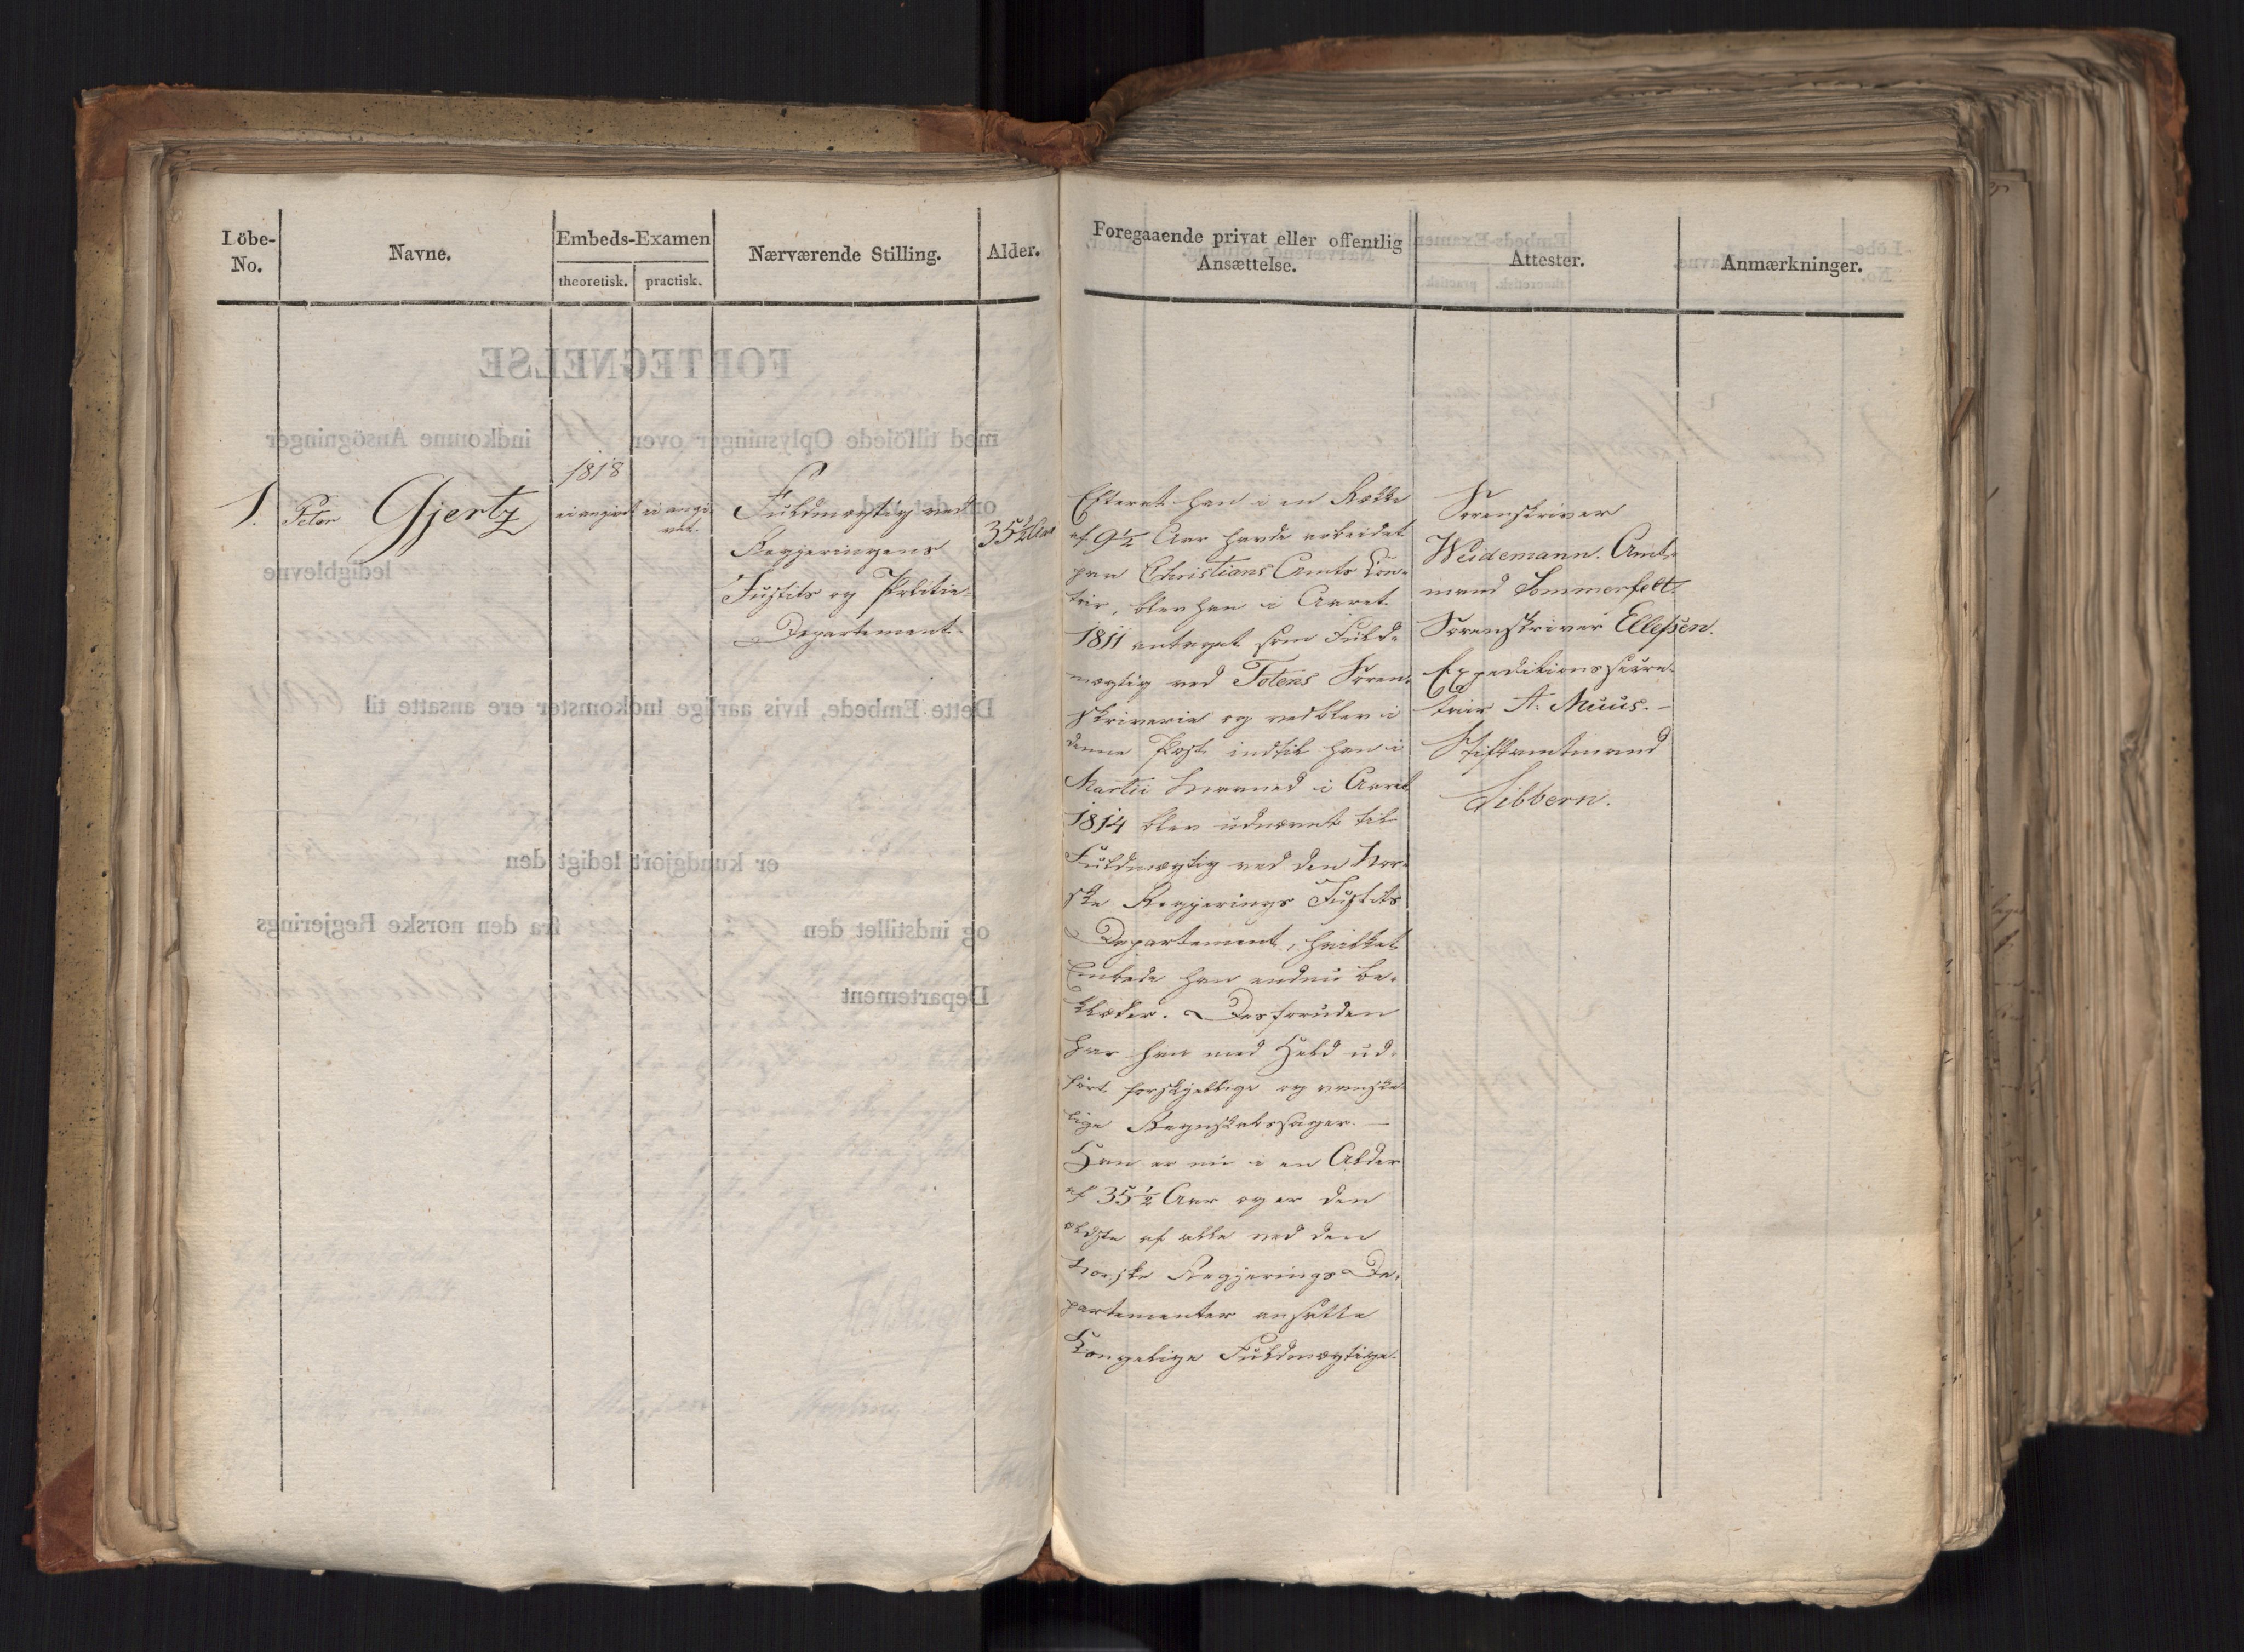 Löbe-No.
Navne.
Embeds-Examen
theoretisk.
practisk.
Nærværende Stilling.
Alder.
Foregaaende privat eller offentlig
Ansættelse.
Attester.
Anmærkninger.
1818
1. Peter Gjertz
ei angivet
ei angi-
vet.
Fuldmægtig ved
Regjeringens
Justits og Politie-
Departement.
35½ Aar
Efterat han i en Række
af 9½ Aar havde arbeidet
paa Christians Amts Con-
toir, blev han i Aaret
1811 antaget som Fuld-
mægtig ved Totens Soren-
skriverie og vedblev i
denne Post indtil han i
Martii Maaned i Aaret
1814 blev udnævnt til
Fuldmægtig ved den Nor-
ske Regjerings Justits
Departement, hvilket
Embede han endnu be-
klæder. Desforuden
har han med Held ud-
ført forskjellige og vanske-
lige Regnskabssager. —
Han er nu i en Alder
af 35½ Aar og er den
ældste af alle ved den
Norske Regjerings De-
partementer ansatte
Kongelige Fuldmægtige.
Sorenskriver
Weidemann. Amt-
mand Sommerfelt.
Sorenskriver Ellefsen.
Expeditionssecre-
tair A. Muus. —
Stiftamtmand
Sibbern.
FORTEGNELSE
med tilföiede Oplysninger over
indkomne Ansögninger
om det ved
ledigblevne
Dette Embede, hvis aarlige Indkomster ere ansatte til
er kundgjort ledigt den
og indstillet den
fra den norske Regjerings
Departement